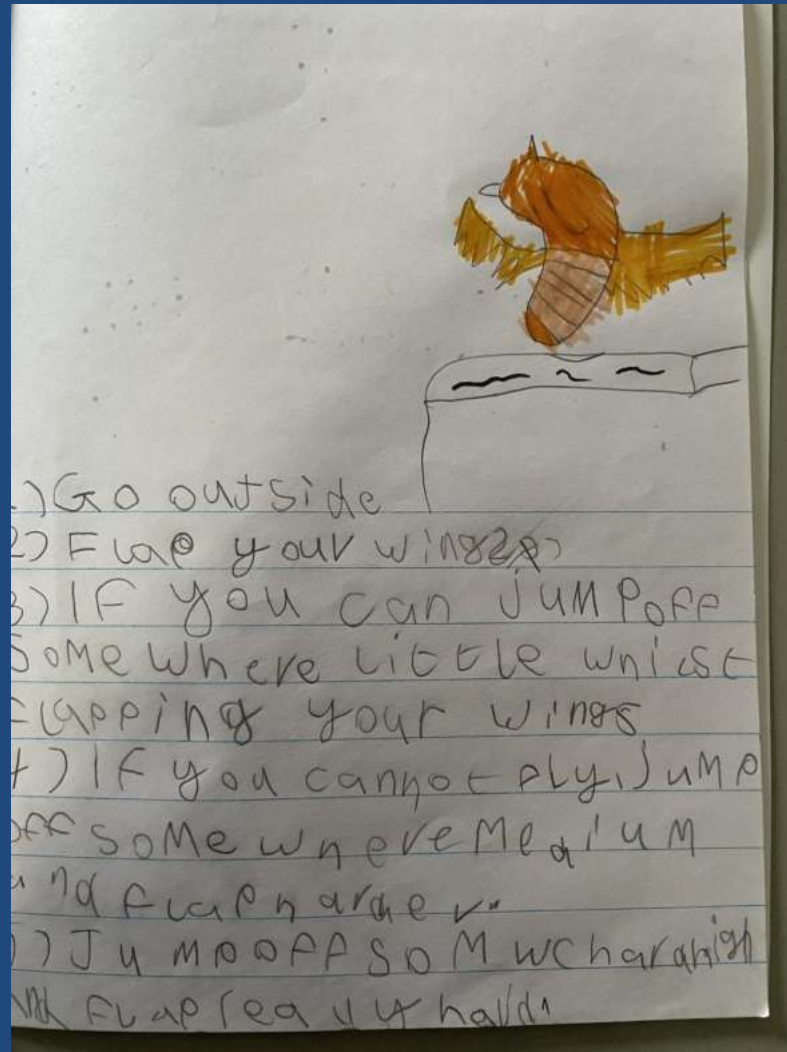 1) Go outside
2) Flap your wings
3) If you can jump off
somewhere little whilst
flapping your wings
4) If you cannot fly, jump
off somewhere medium
and flap harder.
5) Jump off somwchar high
and flap really hard